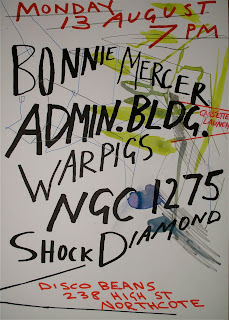 MONDAY
13 AUGUST
7 PM
BONNIE MERCER
ADMIN. BLDG.
CASSETTE
LAUNCH
WARPIGS
NGC 1275
SHOCK DIAMOND
DISCO BEANS
238 HIGH ST
NORTHCOTE